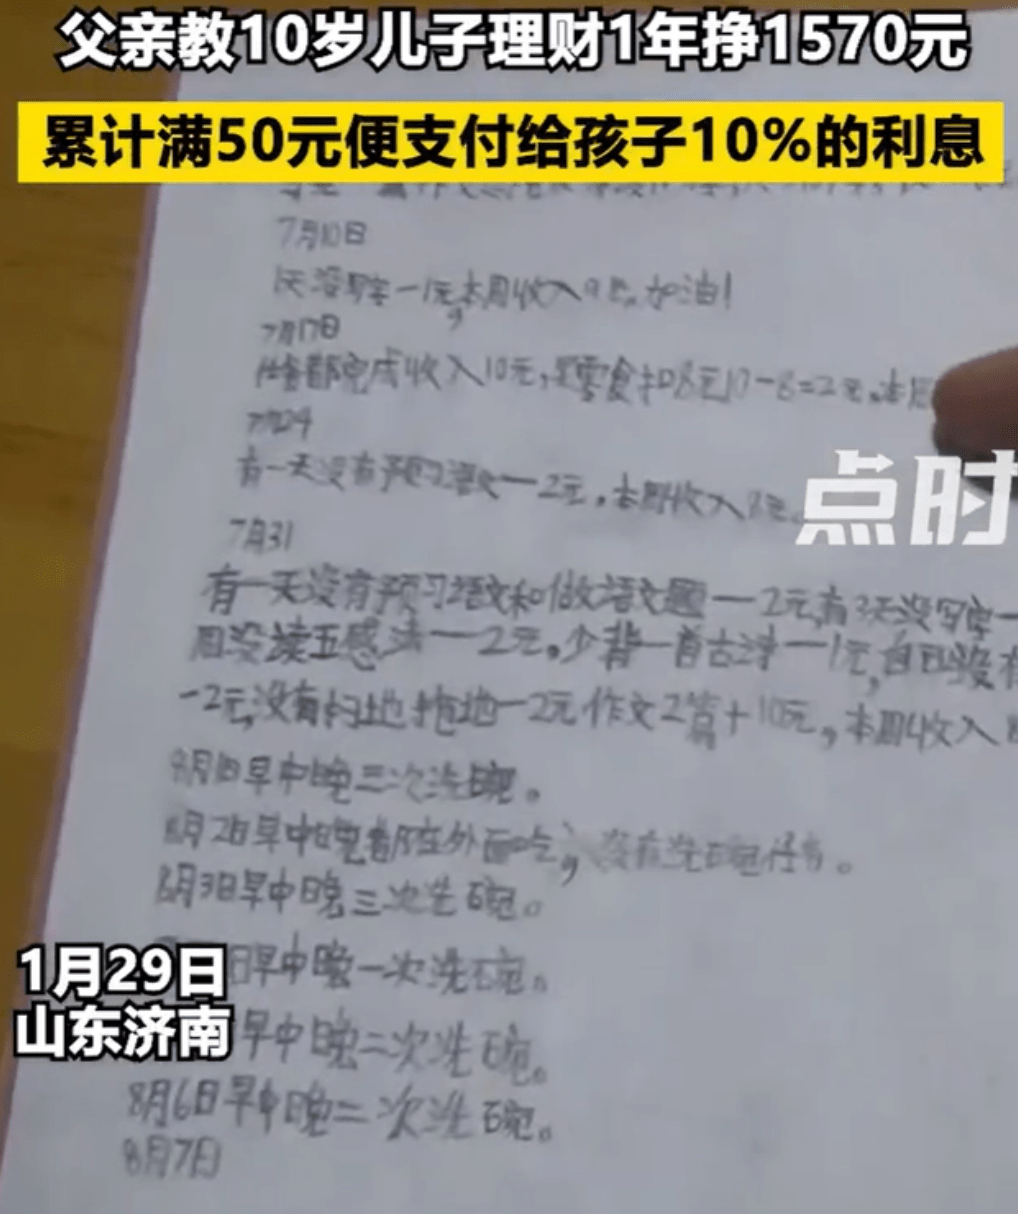 父亲教10岁儿子理财1年挣1570元
累计满50元便支付给孩子10%的利息
7月10日
1天没写字一1元,本周收入9元。加油!
7月17日
都完成收入10元,零食扣8元10-8=2元。本周
7月24
有一天没有预习语文一2元。本周收入8元。
点时
7月31
有一天没有预习语文和做语文题一2元,有3天没写字一
周没读五感法一2元。少背一首古诗一1元,
-2元,没有扫地拖地一2元作文2篇+10元,本周收入
8月1日早中晚三次洗碗。
8月2日早中晚都在外面吃,没有洗碗任务。
8月3日早中晚三次洗碗。
日早中晚一次洗碗。
早中晚二次洗碗。
8月6日早中晚二次洗碗。
8月7日
1月29日
山东济南